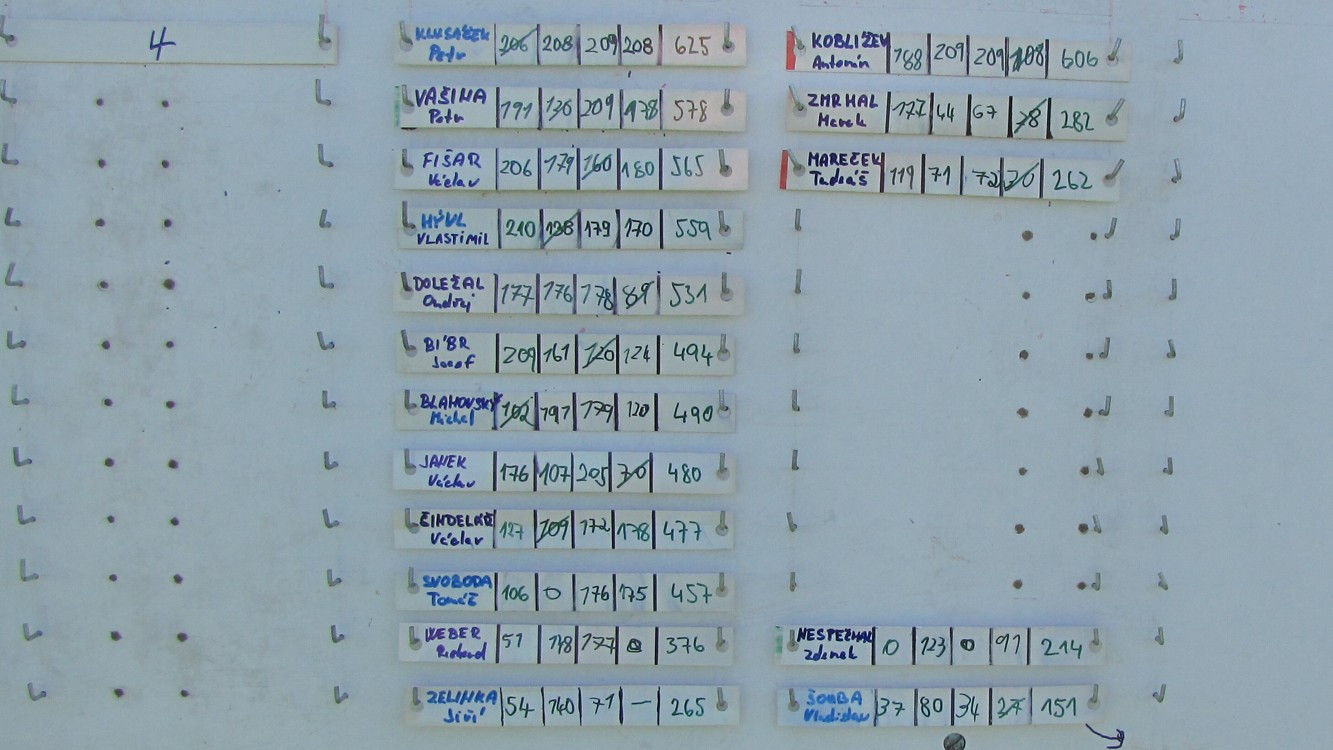 4
KLUSÁČEK Petr 206 208 209 208 625
VAŠINA Petr 191 130 209 178 578
FIŠAR Václav 206 179 160 180 565
HÝVL VLASTIMIL 210 138 179 170 559
DOLEŽAL Ondřej 177 176 178 89 531
BÍBR Josef 209 161 120 124 494
BLAHOVSKÝ Michal 102 191 179 120 490
JANEK Václav 176 107 205 70 480
ČINDELÁŘ Václav 127 109 172 178 477
SVOBODA Tomáš 106 0 176 175 457
WEBER Richard 51 148 177 0 376
ZELINKA Jiří 54 140 71 — 265
KOBLIŽEK Antonín 188 209 209 108 606
ZMRHAL Marek 177 44 67 38 282
MAREČEK Tadeáš 119 71 72 30 262
NESPĚCHAL Zdenek 0 123 0 91 214
ŠOUBA Vladislav 37 80 34 27 151